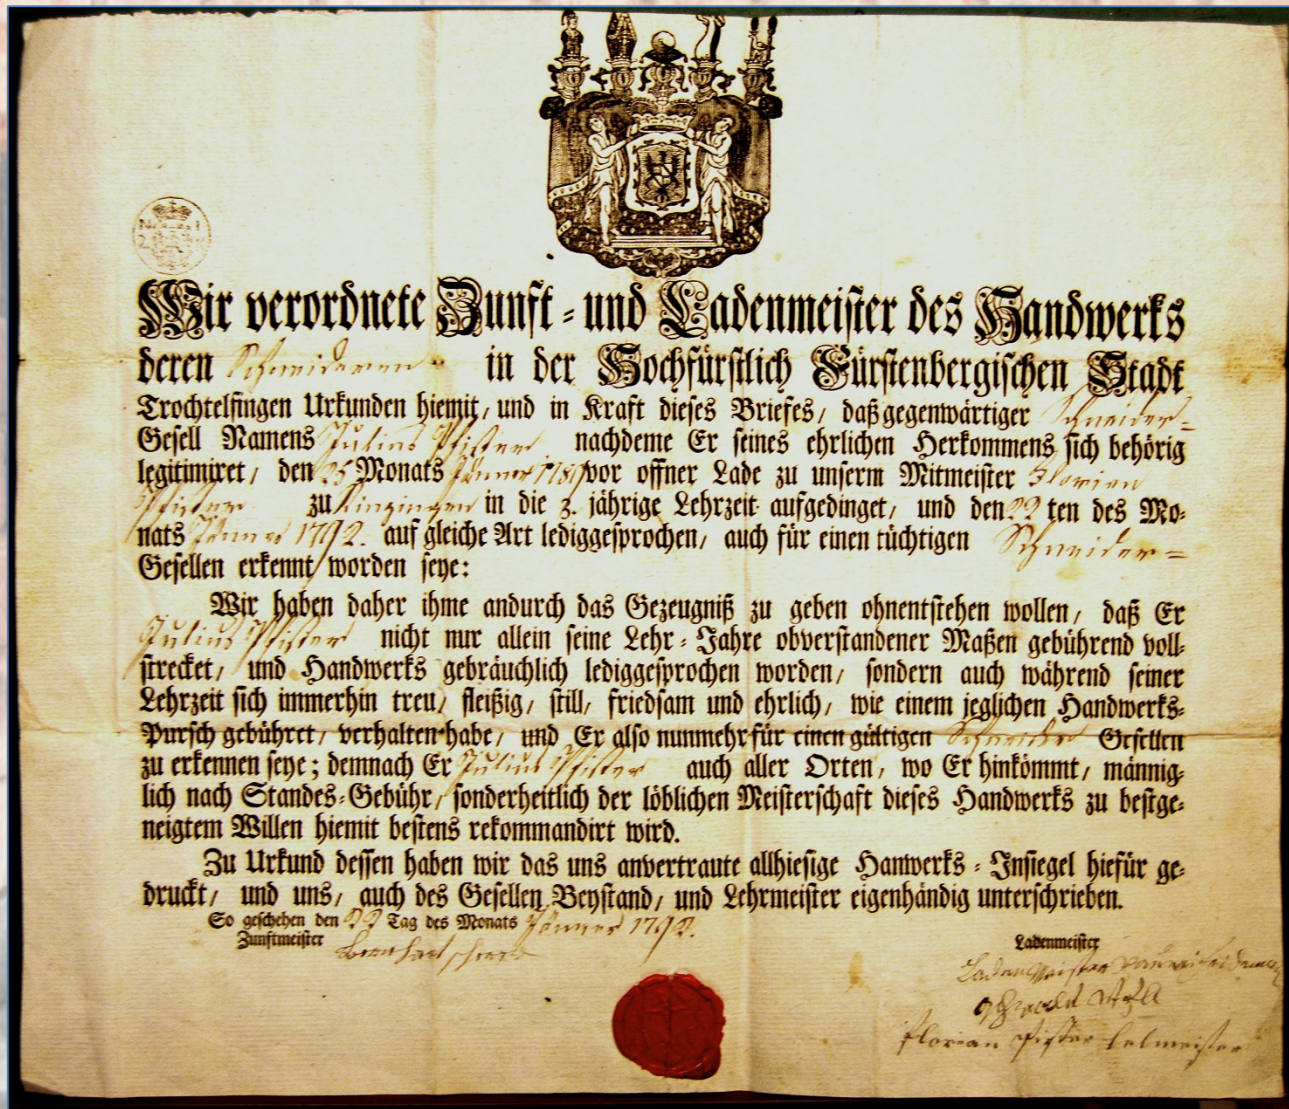 Wir verordnete Zunft - und Ladenmeister des Handwerks
deren Schneideren in der Hochfürstlich Fürstenbergischen Stadt
Trochtelfingen Urkunden hiemit, und in Kraft dieses Briefes, daß gegenwärtiger Schneider=
Gesell Namens Julius Pfister nachdeme Er seines ehrlichen Herkommens sich behörig
legitimiret, den 25 Monats Jänner vor offner Lade zu unserm Mitmeister Florian
Pfister zu Ringingen in die 3. jährige Lehrzeit aufgedinget, und den 22 ten des Mo-
nats Jänner 1792. auf gleiche Art lediggesprochen, auch für einen tüchtigen Schneider=
Gesellen erkennt worden seye:
Wir haben daher ihme andurch das Gezeugniß zu geben ohnentstehen wollen, daß Er
Julius Pfister nicht nur allein seine Lehr-Jahre obverstandener Maßen gebührend voll-
strecket, und Handwerks gebräuchlich lediggesprochen worden, sondern auch während seiner
Lehrzeit sich immerhin treu, fleißig, still, friedsam und ehrlich, wie einem jeglichen Handwerks-
Pursch gebühret, verhalten habe, und Er also nunmehr für einen gültigen Schneider Gesellen
zu erkennen seye; demnach Er Julius Pfister auch aller Orten, wo Er hinkömmt, männig-
lich nach Standes-Gebühr, sonderheitlich der löblichen Meisterschaft dieses Handwerks zu bestge-
neigtem Willen hiemit bestens rekommandirt wird.
Zu Urkund dessen haben wir das uns anvertraute allhiesige Hanwerks-Insiegel hiefür ge-
druckt, und uns, auch des Gesellen Beystand, und Lehrmeister eigenhändig unterschrieben.
So geschehen den 22 Tag des Monats Jänner 1792.
Zunftmeister Ladenmeister
Ladenmeister
Florian Pfister lelmeister